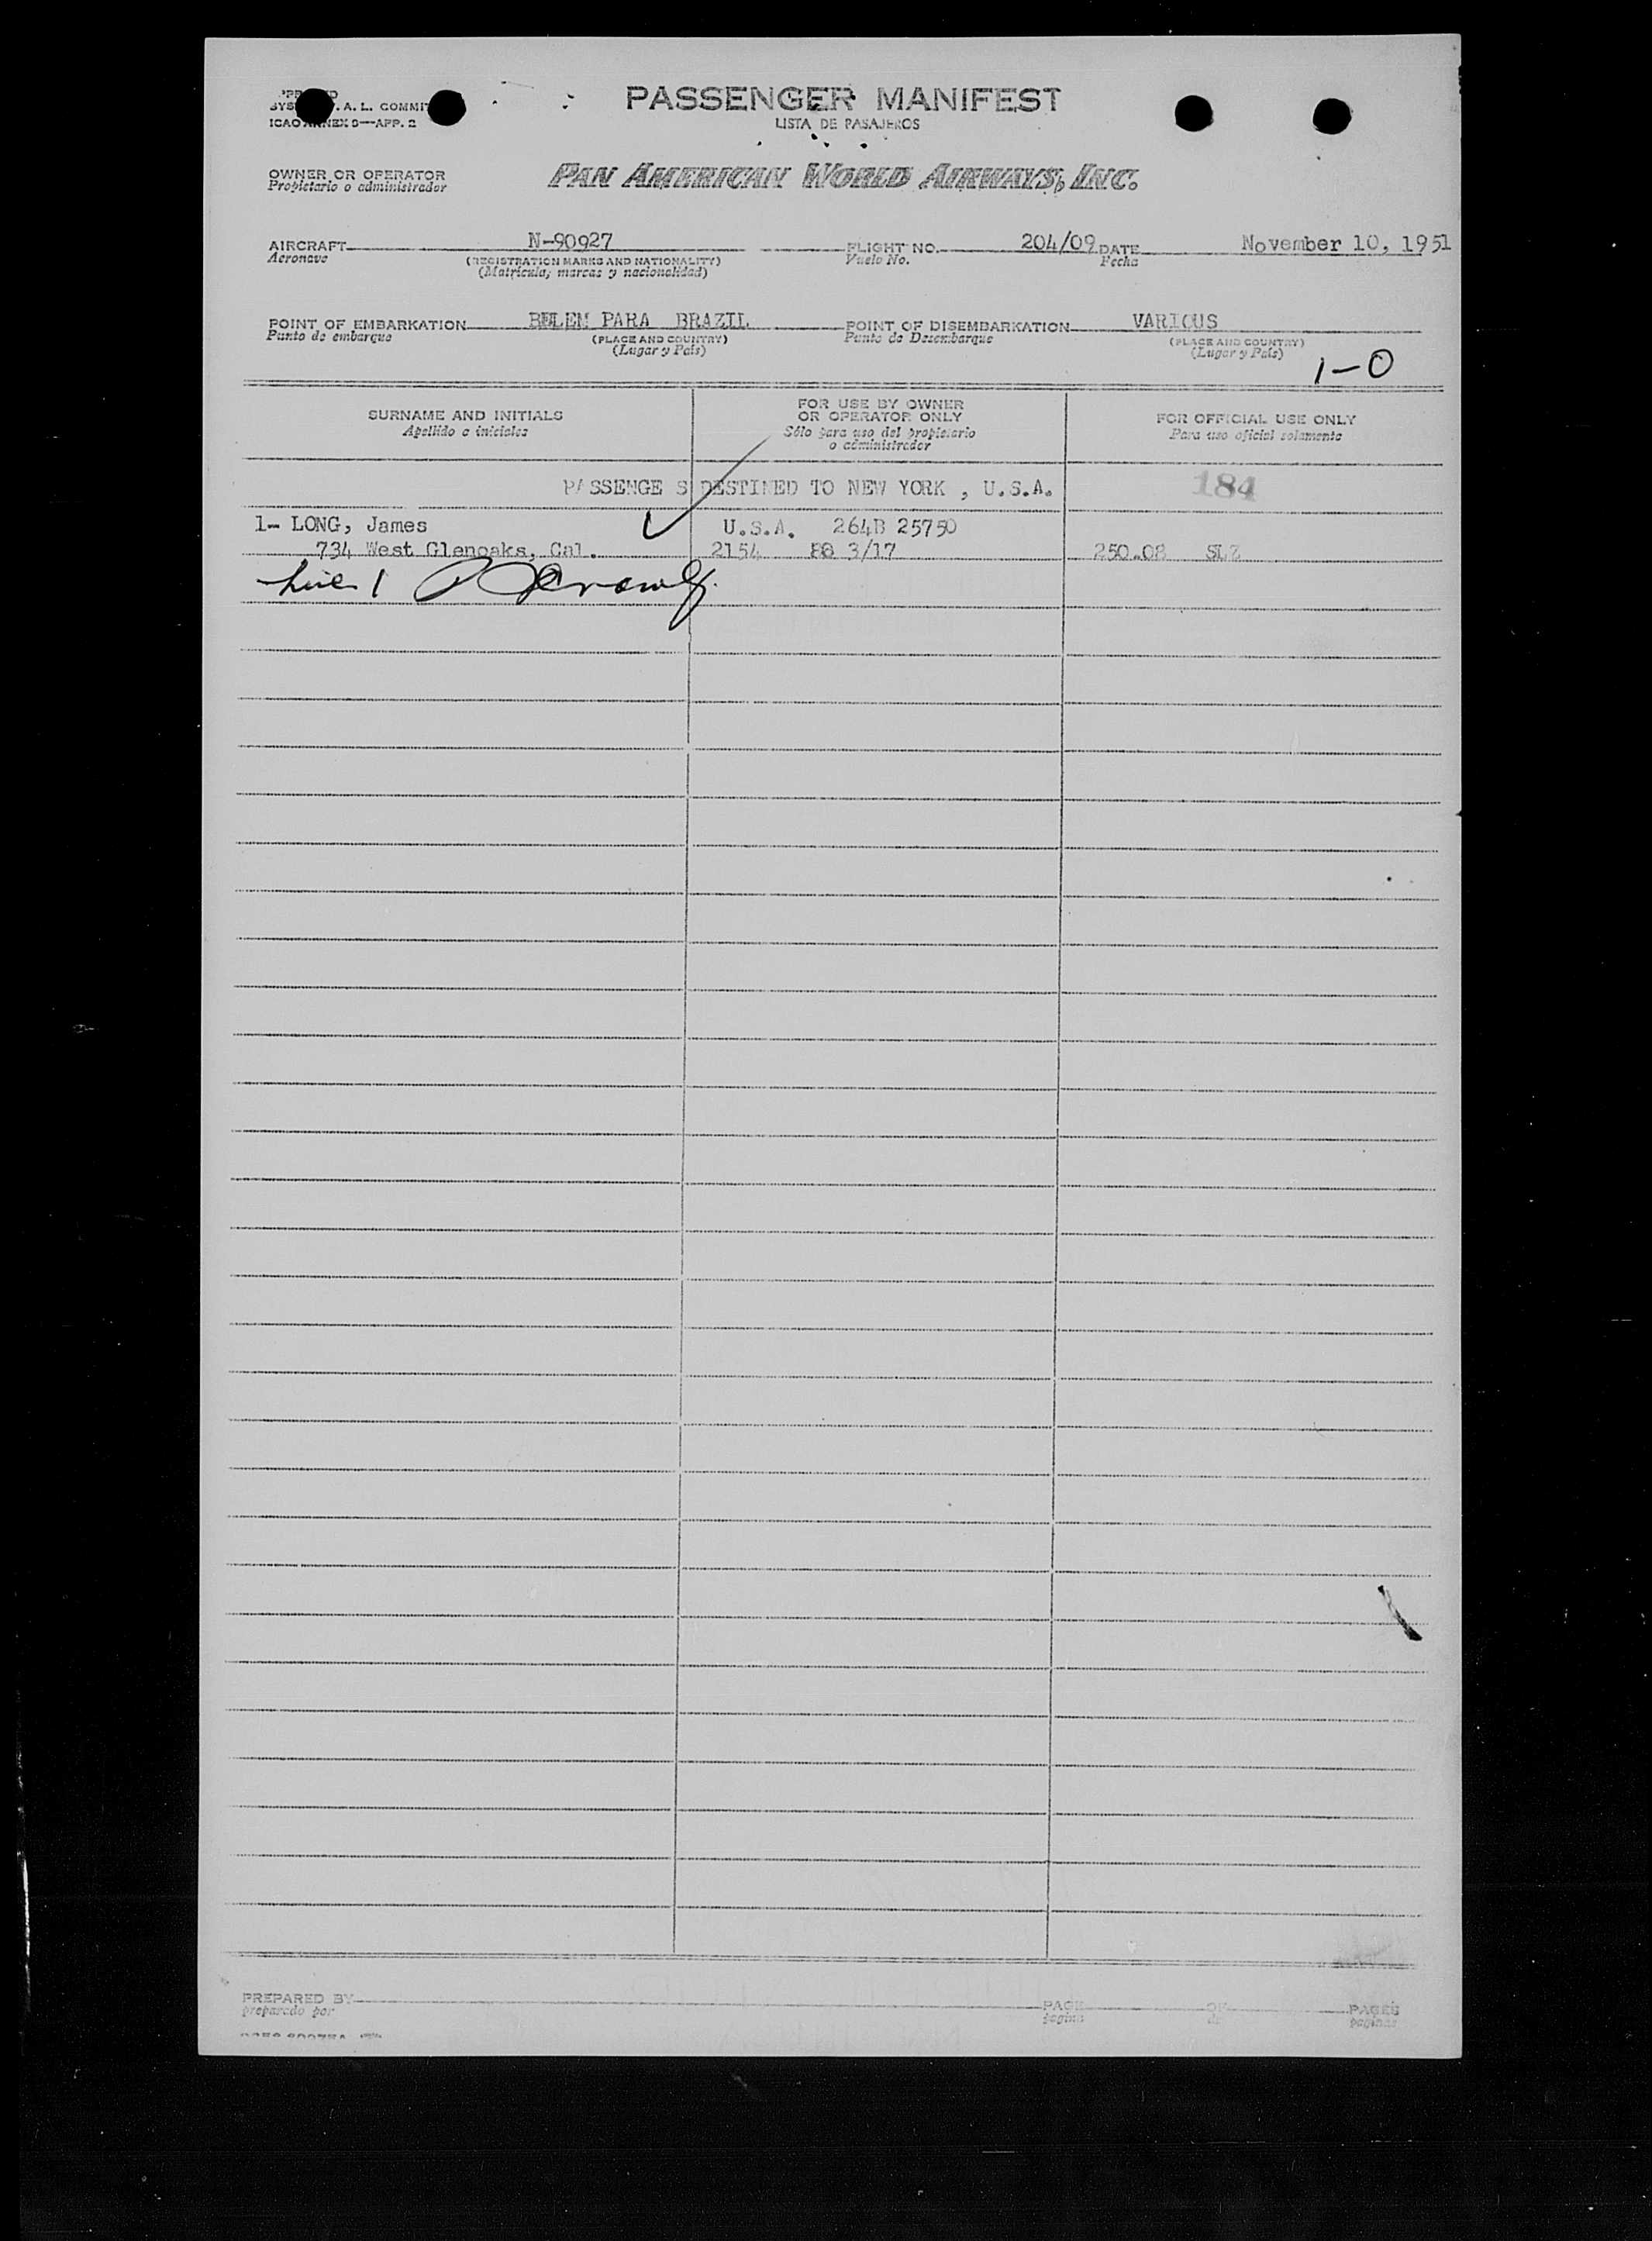 PASSENGER MANIFEST
LISTA DE PASAJEROS
A. L. COMMIT
ICAO ANNEX 9—APP. 2
OWNER OR OPERATOR
Propietario o administrador
PAN AMERICAN WORLD AIRWAYS, INC.
AIRCRAFT N-90927 FLIGHT NO. 204/09 DATE November 10, 1951
Aeronave (REGISTRATION MARKS AND NATIONALITY) Vuelo No. Fecha
(Matrícula, marcas y nacionalidad)
POINT OF EMBARKATION BELEM PARA BRAZIL POINT OF DISEMBARKATION VARIOUS
Punto de embarque (PLACE AND COUNTRY) Punto de Desembarque (PLACE AND COUNTRY)
(Lugar y País) (Lugar y País)
1-0
SURNAME AND INITIALS FOR USE BY OWNER OR OPERATOR ONLY FOR OFFICIAL USE ONLY
Apellido e iniciales Sólo para uso del propietario o administrador Para uso oficial solamente
PASSENGE S DESTINED TO NEW YORK , U.S.A. 184
1- LONG, James U.S.A. 264B 25750
734 West Glenoaks, Cal. 2154 3/17 250.08 SLZ
Line 1
PREPARED BY PAGE OF PAGES
preparado por página de páginas